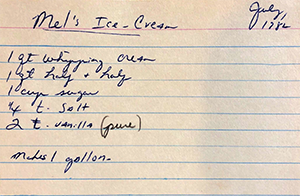 Mel's Ice-Cream
July, 1982
1 qt whipping cream
1 qt half & half
1 cup sugar
1/4 t. Salt
2 t. vanilla (pure)
makes 1 gallon.